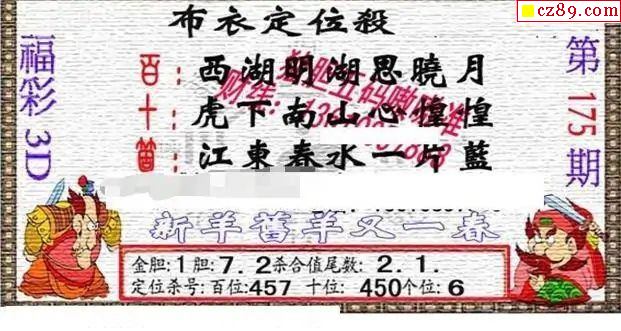 cz89.com
布衣定位殺
福彩3D
第175期
百：西湖明湖思曉月
十：虎下南山心惶惶
箇：江東春水一片藍
新羊舊羊又一春
金胆:1胆:7.2杀合值尾数:2.1.
定位杀号:百位:457 十位:450个位:6